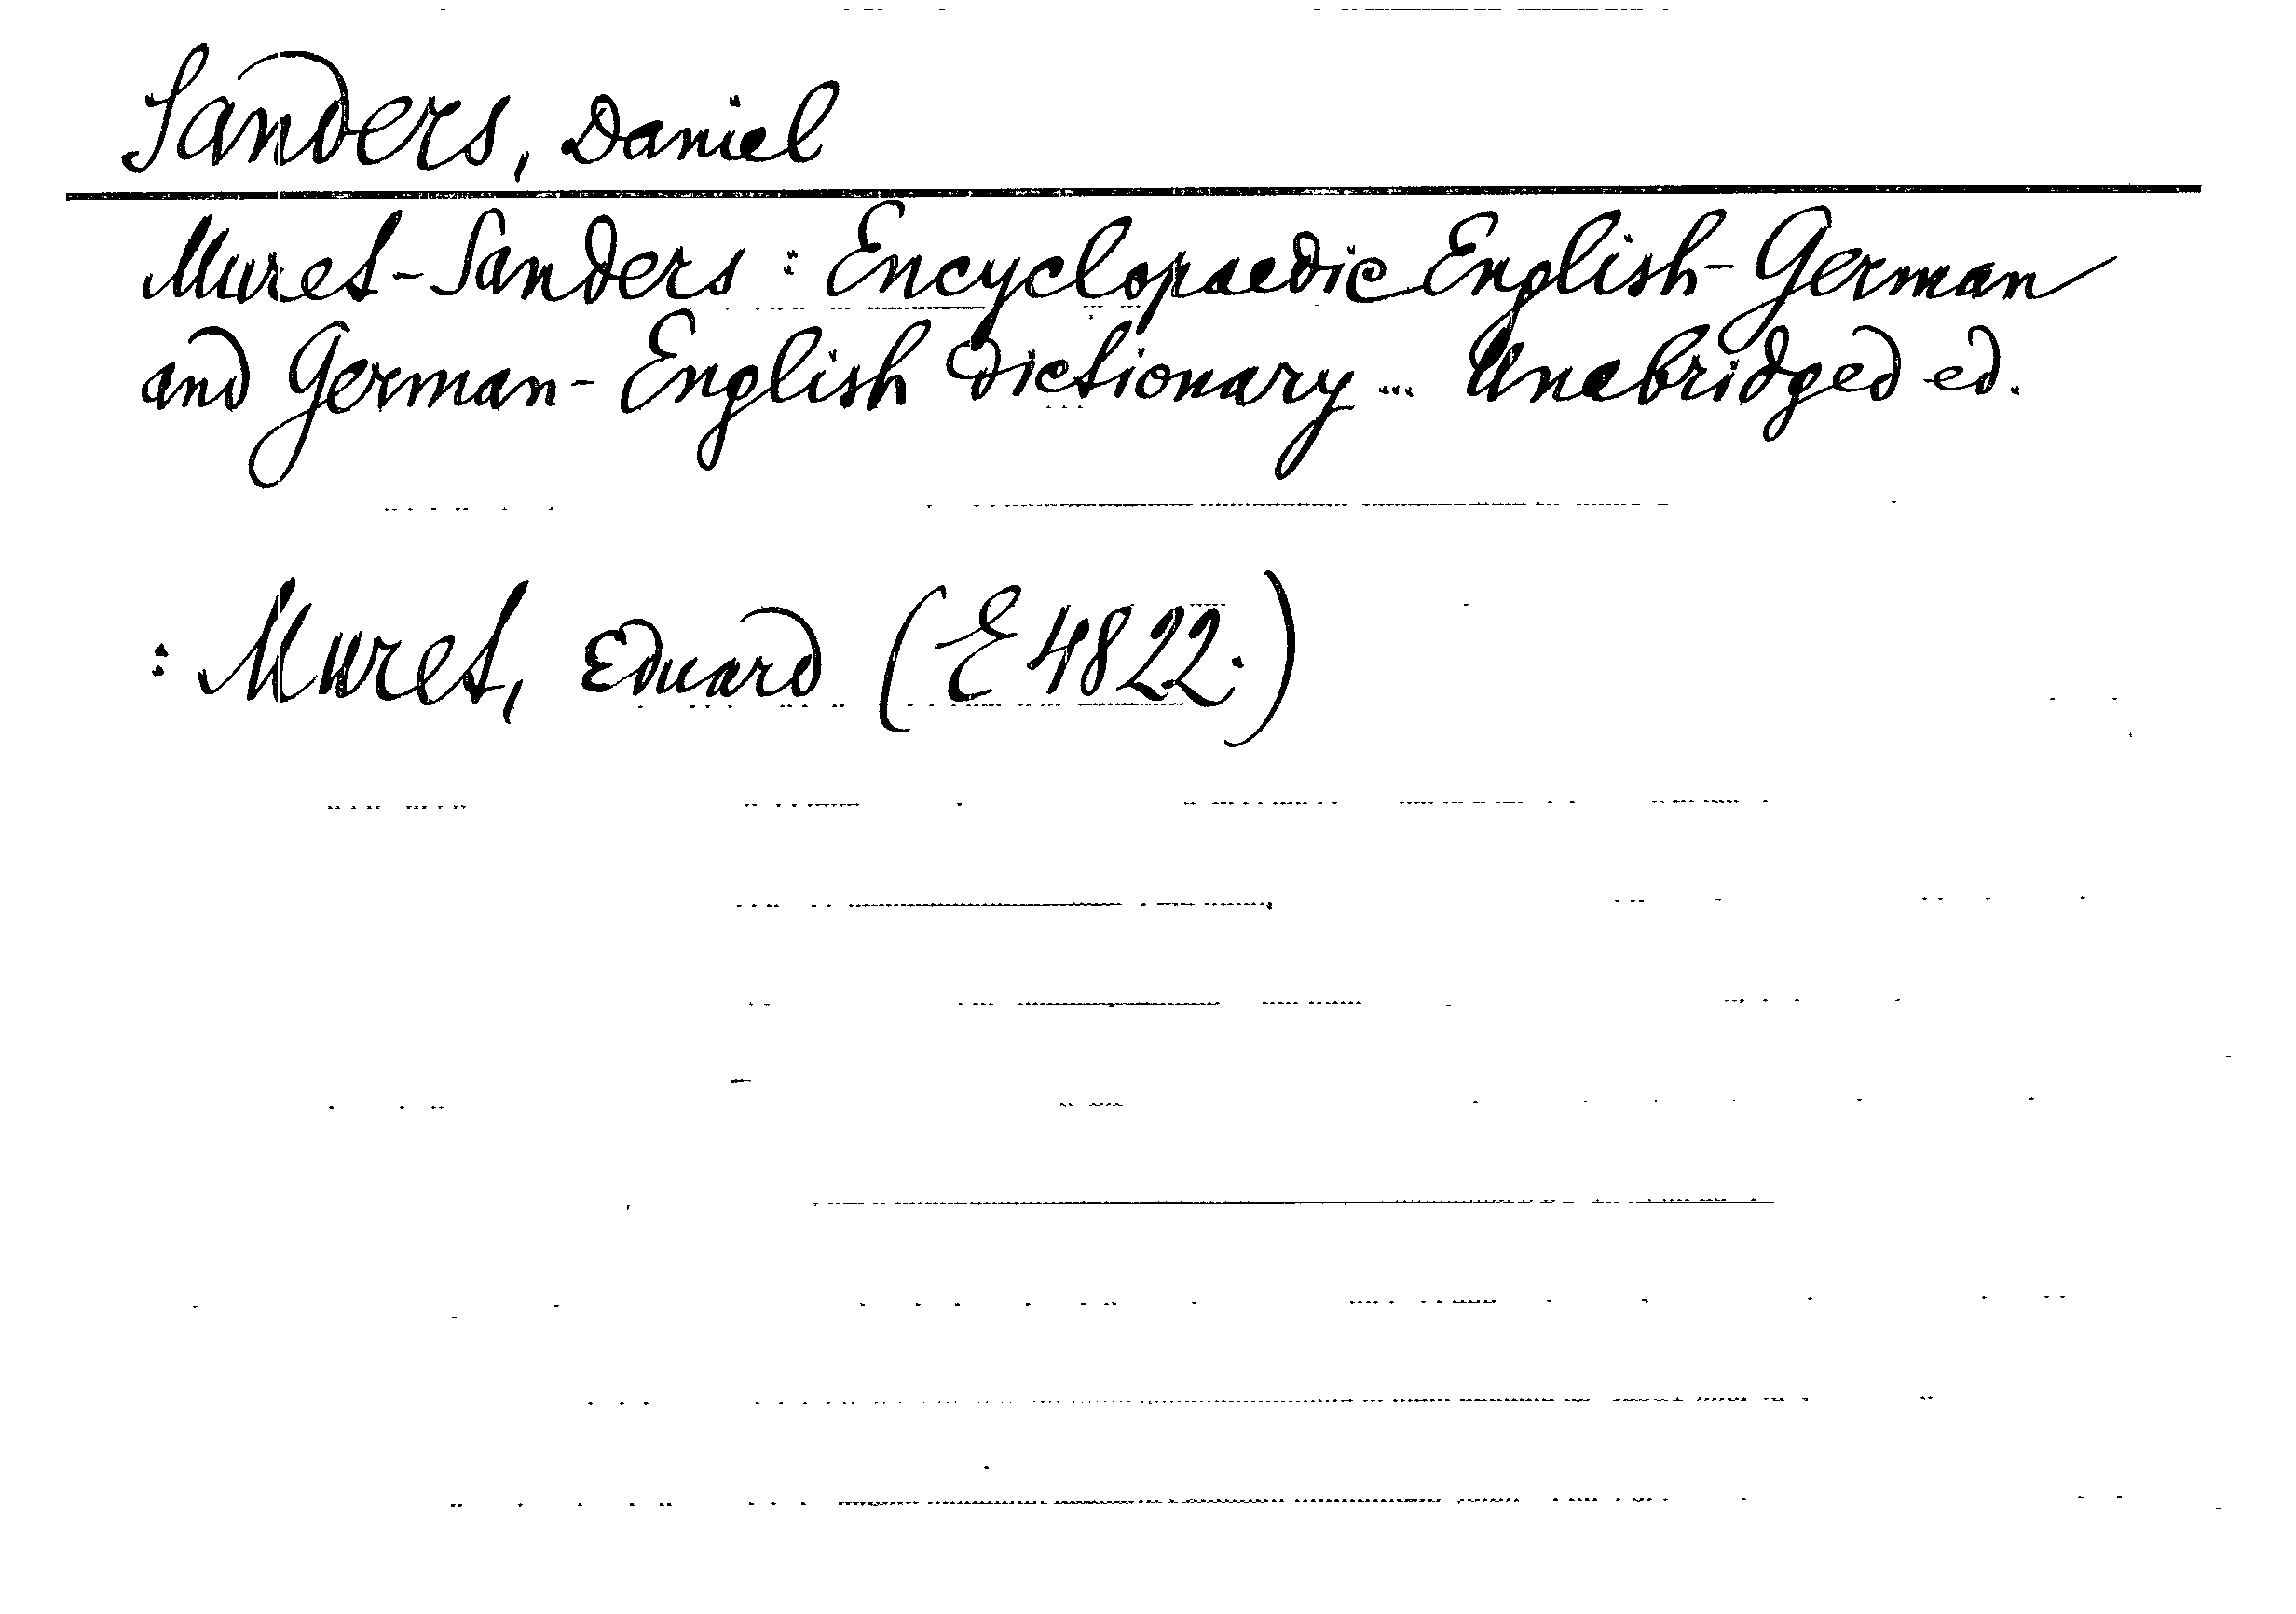 Sanders, Daniel
Muret-Sanders: Encyclopaedic English-German
and German-English Dictionary ... Unabridged ed.
: Muret, Eduard (E 4822.)